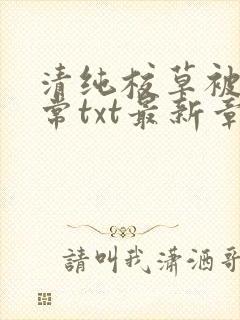 清纯校草被
常txt最新章
請叫我瀟洒哥